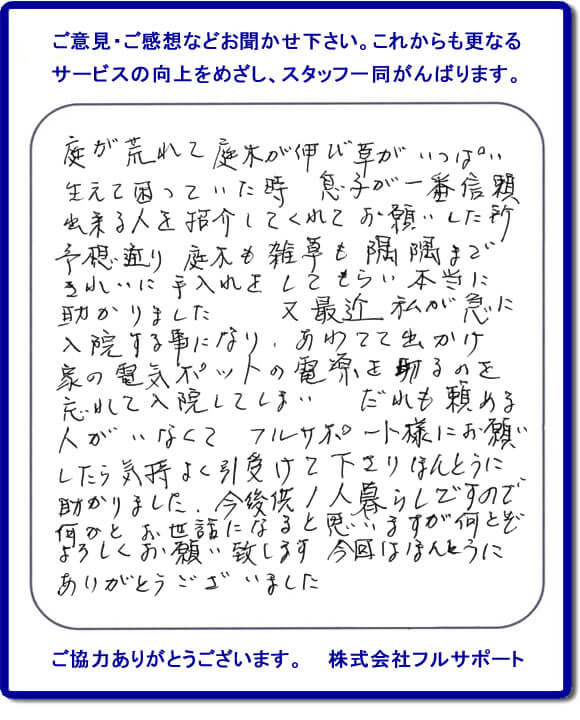 ご意見・ご感想などお聞かせ下さい。これからも更なる
サービスの向上をめざし、スタッフ一同がんばります。
庭が荒れて庭木が伸び草がいっぱい
生えて困っていた時 息子が一番信頼
出来る人を紹介してくれてお願いした所
予想通り 庭木も雑草も隅隅まで
きれいに手入れをしてもらい本当に
助かりました 又最近私が急に
入院する事になり、あわてて出かけ
家の電気ポットの電源を切るのを
忘れて入院してしまい だれも頼める
人がいなくて フルサポート様にお願い
したら気持よく引受けて下さりほんとうに
助かりました、今後供1人暮らしですので
何かとお世話になると思いますが何とぞ
よろしくお願い致します 今回はほんとうに
ありがとうございました
ご協力ありがとうございます。 株式会社フルサポート